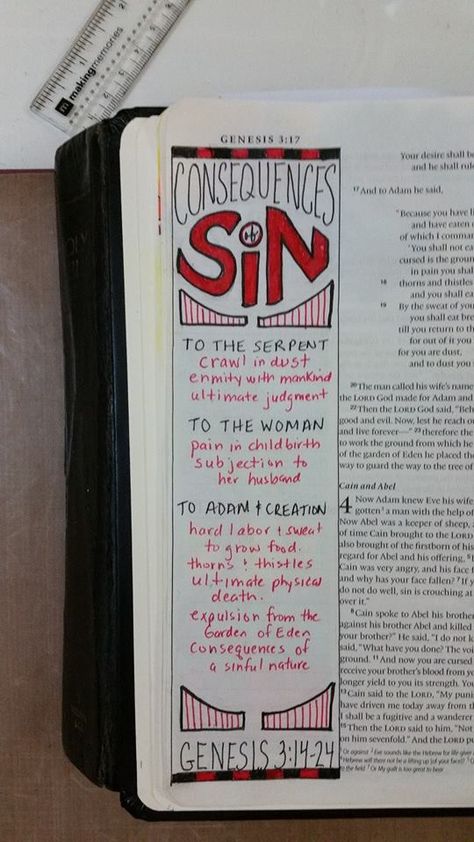 making memories
GENESIS 3:17
CONSEQUENCES
of
SiN
TO THE SERPENT
crawl in dust
enmity with mankind
ultimate judgment
TO THE WOMAN
pain in childbirth
subjection to
her husband
TO ADAM & CREATION
hard labor & sweat
to grow food.
thorns & thistles
ultimate physical
death.
expulsion from the
Garden of Eden
Consequences of
a sinful nature
GENESIS 3:14-24
Your desire shall
and he shall
17 And to Adam he said,
"Because you have
and have eaten
of which I
'You shall not
cursed is the
in pain you
18 thorns and thistles
and you shall
19 By the sweat of
you shall eat
till you return to
for out of it you
for you are dust,
and to dust
20 The man called his wife's name
the LORD God made for Adam and
22 Then the LORD God said,
good and evil. Now, lest he reach
and live forever—" 23 therefore the
to work the ground from which he
of the garden of Eden he placed the
way to guard the way to the tree of
Cain and Abel
4 Now Adam knew Eve his
gotten a man with the help of
Now Abel was a keeper of sheep,
of time Cain brought to the LORD
also brought of the firstborn of his
regard for Abel and his offering,
Cain was very angry, and his face
and why has your face fallen?
do not do well, sin is crouching at
over it."
8 Cain spoke to Abel his brother
against his brother Abel and killed
your brother?" He said, "I do not
said, "What have you done? The
ground. 11 And now you are cursed
receive your brother's blood from
longer yield to you its strength. You
13 Cain said to the LORD, "My
have driven me today away from
I shall be a fugitive and a wanderer
15 Then the LORD said to him, "Not
on him sevenfold." And the LORD
Or against 2 Eve sounds like the Hebrew for
Hebrew will there not be a lifting up [of your face]?
to the field 7 Or My guilt is too great to bear